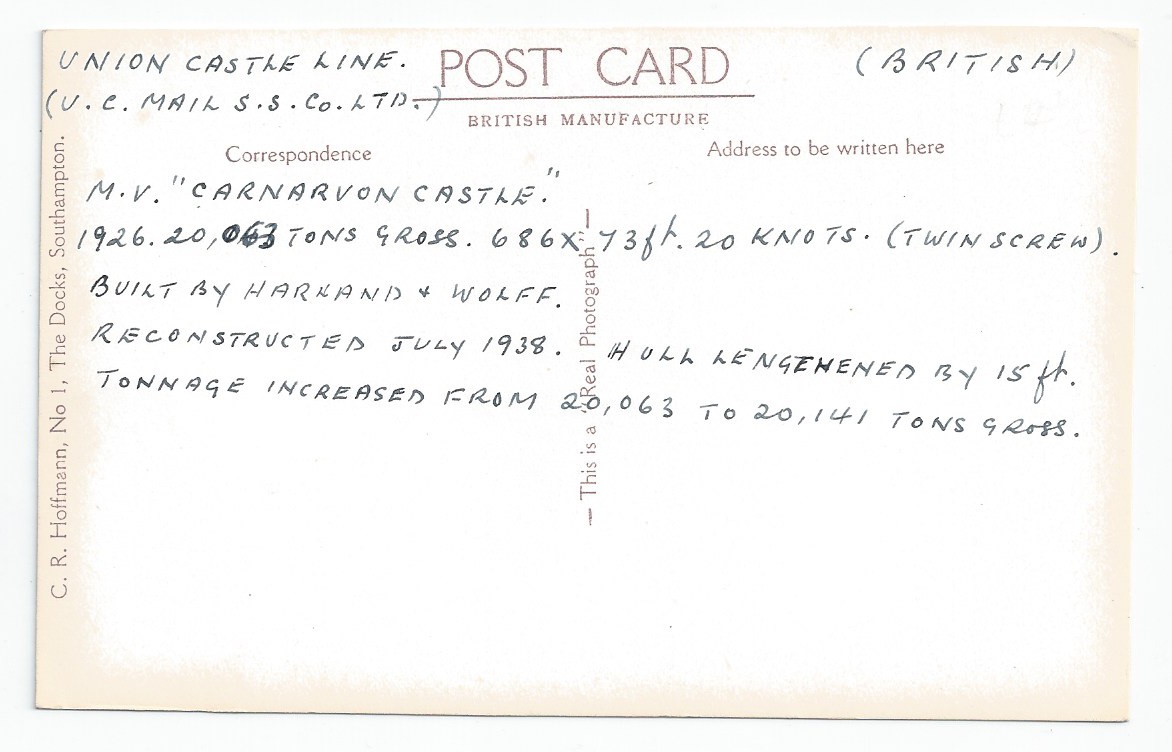 UNION CASTLE LINE.
(U.C. MAIL S.S. Co. LTD.)
POST CARD
(BRITISH)
BRITISH MANUFACTURE
Correspondence
Address to be written here
M.V. "CARNARVON CASTLE."
1926. 20,063 TONS GROSS. 686 X 73ft. 20 KNOTS. (TWIN SCREW).
BUILT BY HARLAND & WOLFF.
RECONSTRUCTED JULY 1938. HULL LENGEHENED BY 15 ft.
TONNAGE INCREASED FROM 20,063 TO 20,141 TONS GROSS.
C. R. Hoffmann, No 1, The Docks, Southampton.
— This is a "Real Photograph" —